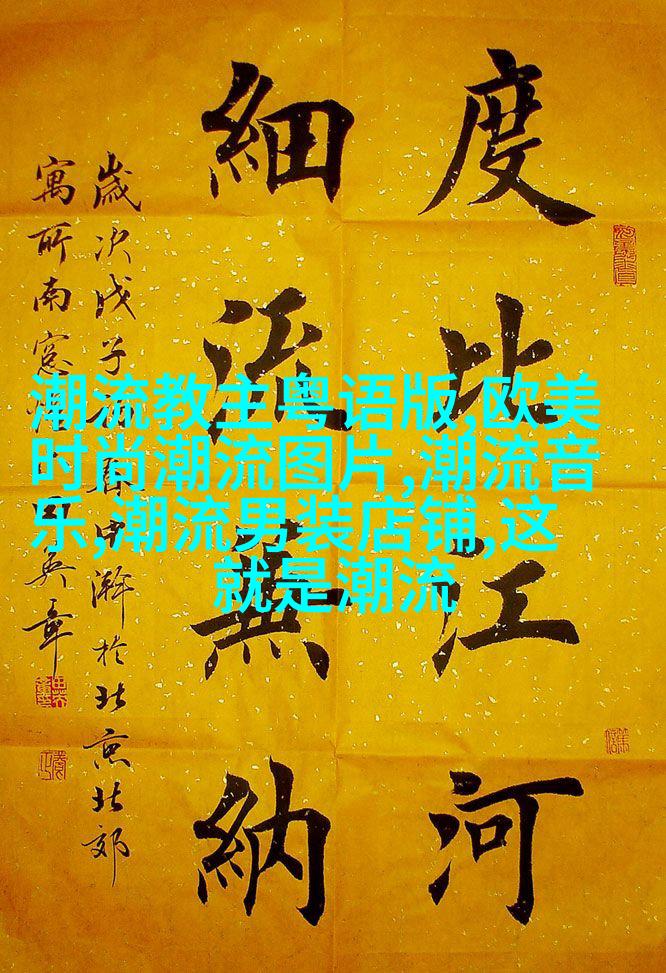 潮流教主粤语版,欧美
时尚潮流图片,潮流音
乐,潮流男装店铺,这
就是潮流
度比江河
細流兼納
歲次戊子於北京北郊
寓所南窓英章